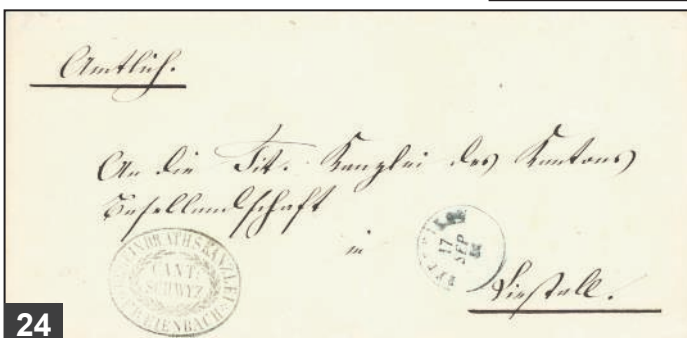 Amtlich.
An die Tit. Kanzlei des Kantons
Basellandschaft
in
Liestall.
GEMEINDRATHSKANZLEI
CANT:
SCHWYZ
FREIENBACH
17
SEP
24